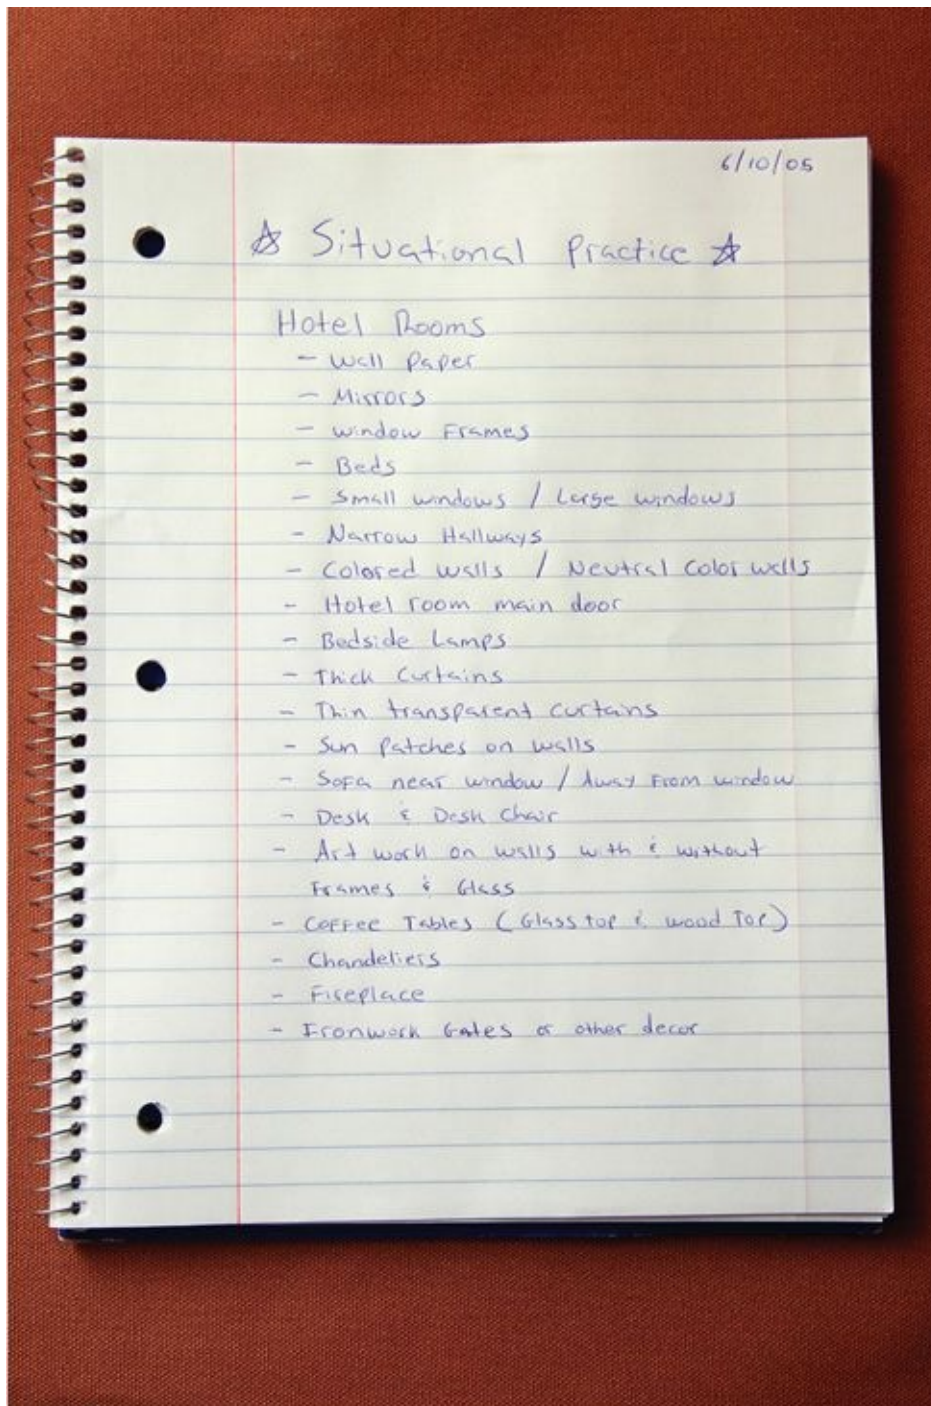 6/10/05
☆ Situational Practice ☆
Hotel Rooms
- Wall Paper
- Mirrors
- Window Frames
- Beds
- Small windows / Large windows
- Narrow Hallways
- Colored walls / Neutral Color walls
- Hotel room main door
- Bedside Lamps
- Thick Curtains
- Thin transparent curtains
- Sun Patches on walls
- Sofa near window / Away From window
- Desk & Desk Chair
- Art work on walls with & without
Frames & Glass
- Coffee Tables (Glass top & wood Top)
- Chandeliers
- Fireplace
- Ironwork Gates or other decor